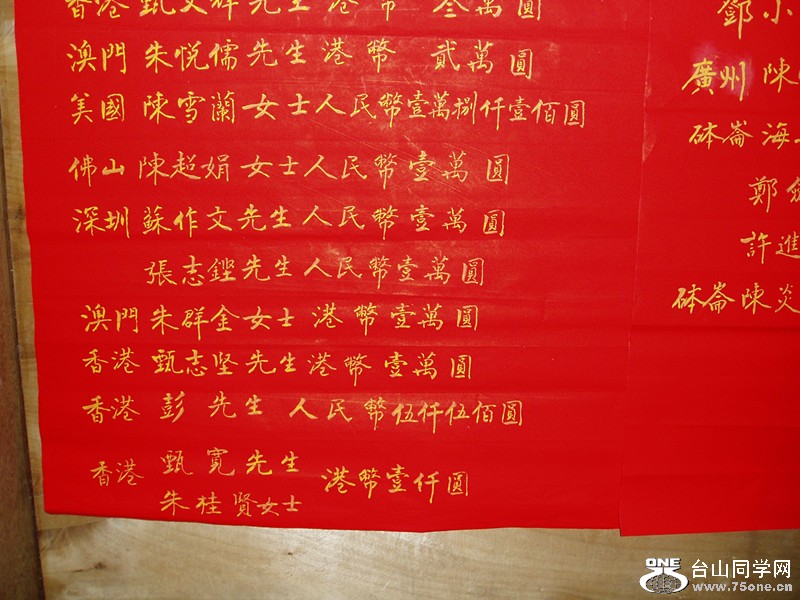 香港 甄文群先生 港幣 叁萬圓
澳門 朱悦儒先生港幣 貳萬圓
美國 陳雪蘭女士人民幣壹萬捌仟壹佰圓
佛山 陳超娟女士人民幣壹萬圓
深圳 蘇作文先生人民幣壹萬圓
張志鏗先生人民幣壹萬圓
澳門 朱群金女士 港幣壹萬圓
香港 甄志坚先生港幣壹萬圓
香港 彭 先生 人民幣伍仟伍佰圓
香港 甄寬先生 港幣壹仟圓
朱桂賢女士
鄧小
廣州 陳
砵崙 海
鄭
許進
砵崙 陳炎
ONE
75
台山同学网
www.75one.cn